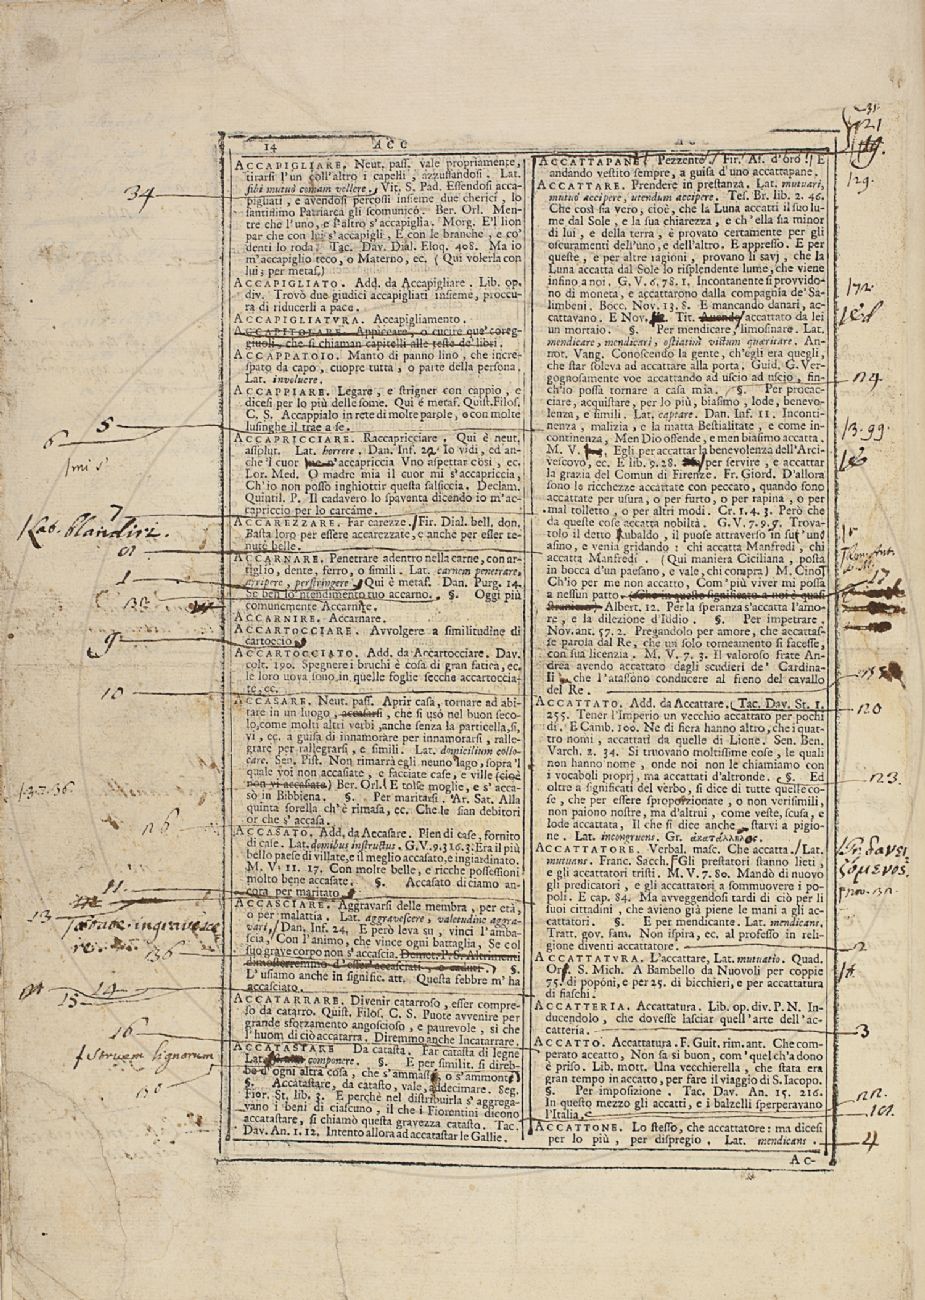 14 ACC
ACCAPIGLIARE. Neut. pass. vale propriamente,
tirarsi l'un coll'altro i capelli, azzuffandosi. Lat.
sibi mutuò comam vellere. Vit. S. Pad. Essendosi acca-
pigliati, e avendosi percossi insieme due cherici, lo
santissimo Patriarca gli scomunicò. Ber. Orl. Men-
tre che l'uno, e l'altro s'accapiglia. Morg. E'l lion
par che con lui s'accapigli, E con le branche, e co'
denti lo roda. Tac. Dav. Dial. Eloq. 408. Ma io
m'accapiglio teco, o Materno, ec. (Qui volerla con
lui; per metaf.)
ACCAPIGLIATO. Add. da Accapigliare. Lib. op.
div. Trovò due giudici accapigliati insieme, proccu-
ra di riducerli a pace.
ACCAPIGLIATVRA. Accapigliamento.
ACCAPITOLARE. Appiccare, o cucire que' coreg-
giuoli, che si chiaman capitelli alle teste de' libri.
ACCAPPATOIO. Manto di panno lino, che incre-
spato da capo, cuopre tutta, o parte della persona.
Lat. involucre.
ACCAPPIARE. Legare, e strigner con cappio, e
dicesi per lo più delle some. Qui è metaf. Quist. Filos.
C. S. Accappialo in rete di molte parole, o con molte
lusinghe il trae a se.
ACCAPRICCIARE. Raccapricciare, Qui è neut.
assolut. Lat. horrere. Dan. Inf. 22. Io vidi, ed an-
che 'l cuor me n'accapriccia Vno aspettar così, ec.
Lor. Med. O madre mia il cuor mi s'accapriccia,
Ch'io non posso inghiottir questa salsiccia. Declam.
Quintil. P. Il cadavero lo spaventa dicendo io m'ac-
capriccio per lo carcáme.
ACCAREZZARE. Far carezze. Fir. Dial. bell. don.
Basta loro per essere accarezzate, e anche per esser te-
nute belle.
ACCARNARE. Penetrare adentro nella carne, con ar-
tiglio, dente, ferro, o simili. Lat. carnem penetrare,
arripere, perstringere. Qui è metaf. Dan. Purg. 14.
Se ben lo ntendimento tuo accarno. §. Oggi più
comunemente Accarnire.
ACCARNIRE. Accarnare.
ACCARTOCCIARE. Avvolgere a similitudine di
cartoccio.
ACCARTOCCIATO. Add. da Accartocciare. Dav.
colt. 190. Spegnere i bruchi è cosa di gran fatica, ec.
le loro uova sono in quelle foglie secche accartoccia-
te, ec.
ACCASARE. Neut. pass. Aprir casa, tornare ad abi-
tare in un luogo, accasarsi, che si usò nel buon seco-
lo, come molti altri verbi anche senza la particella, si,
vi, ec. a guisa di innamorare per innamorarsi, ralle-
grare per rallegrarsi, e simili. Lat. domicilium collo-
care. Sen. Pist. Non rimarrà egli neuno lago, sopra 'l
quale voi non accasiate, e facciate case, e ville (cioè
non vi accasiate) Ber. Orl. E tolse moglie, e s'acca-
sò in Bibbiena. §. Per maritarsi. Ar. Sat. Alla
quinta sorella ch'è rimasa, ec. Che le sian debitori
or che s'accasa.
ACCASATO. Add. da Accasare. Pien di case, fornito
di case. Lat. domibus instructus. G. V. 9. 316. 3. Era il più
bello paese di villate, e il meglio accasato, e ingiardinato.
M. V. 11. 17. Con molte belle, e ricche possessioni
molto bene accasate. §. Accasato diciamo an-
cora per maritato.
ACCASCIARE. Aggravarsi delle membra, per età,
o per malattia. Lat. aggravescere, valetudine aggra-
vari. Dan. Inf. 24. E però leva su, vinci l'amba-
scia, Con l'animo, che vince ogni battaglia, Se col
suo grave corpo non s'accascia. Demet. P. S. Altrimenti
dimosterremmo d'esser accasciati, o caduti. §.
L'usiamo anche in signific. att. Questa febbre m'ha
accasciato.
ACCATARRARE. Divenir catarroso, esser compre-
so da catarro. Quist. Filos. C. S. Puote avvenire per
grande sforzamento angoscioso, e paurevole, si che
l'huom di ciò accatarra. Diremmo anche Incatarrare.
ACCATASTARE Da catasta. Far catasta di legne
Lat. componere. §. E per similit. si direb-
be d'ogni altra cosa, che s'ammassi, o s'ammonti
§. Accatastare, da catasto, vale, addecimare. Seg.
Fior. St. lib. 3. E perchè nel distribuirla s'aggrega-
vano i beni di ciascuno, il che i Fiorentini dicono
accatastare, si chiamò questa gravezza catasto. Tac.
Dav. An. 1. 12. Intento allora ad accatastar le Gallie.
ACCATTAPANE Pezzente. Fir. As. d'oro. E
andando vestito sempre, a guisa d'uno accattapane.
ACCATTARE. Prendere in prestanza. Lat. mutuari,
mutuò accipere, utendum accipere. Tes. Br. lib. 2. 46.
Che così sia vero, cioè, che la Luna accatti il suo lu-
me dal Sole, e la sua chiarezza, e ch'ella sia minor
di lui, e della terra, è provato certamente per gli
oscuramenti dell'uno, e dell'altro. E appresso. E per
queste, e per altre ragioni, provano li savj, che la
Luna accatta dal Sole lo risplendente lume, che viene
infino a noi. G. V. 6. 78. 1. Incontanente si provvido-
no di moneta, e accattarono dalla compagnia de' Sa-
limbeni. Bocc. Nov. 13. 8. E mancando danari, ac-
cattavano. E Nov. Tit. Avendo accattato da lei
un mortaio. §. Per mendicare, limosinare. Lat.
mendicare, mendicari, ostiatim victum quaeritare. An-
not. Vang. Conoscendo la gente, ch'egli era quegli,
che star soleva ad accattare alla porta. Guid. G. Ver-
gognosamente voe accattando ad uscio ad uscio, fin-
ch'io possa tornare a casa mia. §. Per procac-
ciare, acquistare, per lo più, biasimo, lode, benevo-
lenza, e simili. Lat. captare. Dan. Inf. 11. Inconti-
nenza, malizia, e la matta Bestialitate, e come in-
continenza, Men Dio offende, e men biasimo accatta.
M. V. Egli per accattar la benevolenza dell'Arci-
vescovo, ec. E lib. 9. 28. per servire, e accattar
la grazia del Comun di Firenze. Fr. Giord. D'allora
sono le ricchezze accattate con peccato, quando sono
accattate per usura, o per furto, o per rapina, o per
mal tolletto, o per altri modi. Cr. 1. 4. 3. Però che
da queste cose accatta nobiltà. G. V. 7. 9. 7. Trova-
tolo il detto Rubaldo, il puose attraverso in su 'uno
asino, e venia gridando: chi accatta Manfredi, chi
accatta Manfredi. (Qui maniera Ciciliana, posta
in bocca d'un paesano, e vale, chi compra) M. Cino.
Ch'io per me non accatto, Com' più viver mi possa
a nessun patto. (Che in questo significato a noi è quasi
straniero) Albert. 12. Per la speranza s'accatta l'amo-
re, e la dilezione d'Iddio. §. Per impetrare.
Nov. ant. 57. 2. Pregandolo per amore, che accattas-
se parola dal Re, che un solo torneamento si facesse,
con sua licenzia. M. V. 7. 3. Il valoroso frate An-
drea avendo accattato dagli scudieri de' Cardina-
li, che l'atassono conducere al fieno del cavallo
del Re.
ACCATTATO. Add. da Accattare. Tac. Dav. St. 1.
255. Tener l'Imperio un vecchio accattato per pochi
dì. E Camb. 100. Ne di fiera hanno altro, che i quat-
tro nomi, accattati da quelle di Lione. Sen. Ben.
Varch. 2. 34. Si truovano moltissime cose, le quali
non hanno nome, onde noi non le chiamiamo con
i vocaboli proprj, ma accattati d'altronde. §. Ed
oltre a' significati del verbo, si dice di tutte quelle co-
se, che per essere sproporzionate, o non verisimili,
non paiono nostre, ma d'altrui, come veste, scusa, e
lode accattata, Il che si dice anche starvi a pigio-
ne. Lat. incongruens. Gr.
ACCATTATORE. Verbal. masc. Che accatta. Lat.
mutuans. Franc. Sacch. Gli prestatori stanno lieti,
e gli accattatori tristi. M. V. 7. 80. Mandò di nuovo
gli predicatori, e gli accattatori a sommuovere i po-
poli. E cap. 84. Ma avveggendosi tardi di ciò per li
suoi cittadini, che avieno già piene le mani a gli ac-
cattatori §. E per mendicante. Lat. mendicans.
Tratt. gov. fam. Non ispira, ec. al professo in reli-
gione diventi accattatore.
ACCATTATVRA. L'accattare, Lat. mutuatio. Quad.
Ors. S. Mich. A Bambello da Nuovoli per coppie
75. di poponi, e per 25. di bicchieri, e per accattatura
di fiaschi.
ACCATTERIA. Accattatura. Lib. op. div. P. N. In-
ducendolo, che dovesse lasciar quell'arte dell'ac-
catteria.
ACCATTO. Accattatura. F. Guit. rim. ant. Che com-
perato accatto, Non sa si buon, com' quel ch'a dono
è priso. Lib. mott. Una vecchierella, che stata era
gran tempo in accatto, per fare il viaggio di S. Iacopo.
§. Per imposizione. Tac. Dav. An. 15. 216.
In questo mezzo gli accatti, e i balzelli sperperavano
l'Italia.
ACCATTONE. Lo stesso, che accattatore: ma dicesi
per lo più, per dispregio. Lat. mendicans.
Ac-
34
5
6
7
Lat. blandiri.
1
9
10
26
11
13
136
14
15
16
struem lignorum
31
21
129.
172
124
13.99.
15
17
120
123.
Gr. δανει-
ζόμενος.
2
3
122.
101.
4